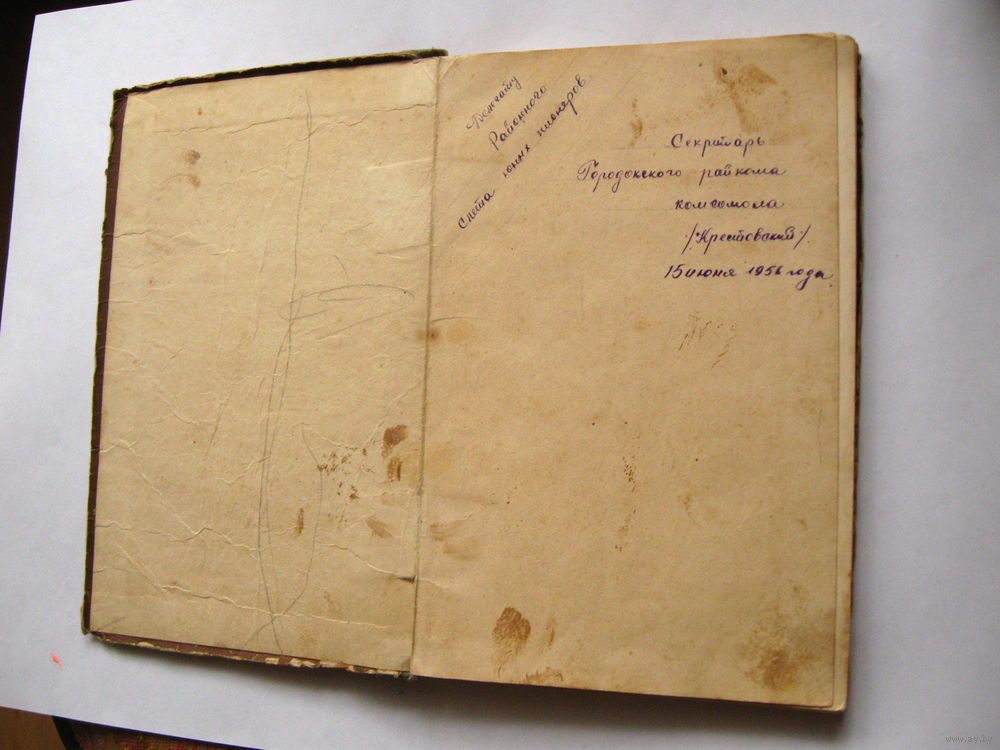 Делегату
Районного
слёта юных пионеров
Секретарь
Городокского райкома
комсомола
/:Крестовский:/.
15 июня 1956 года.
www.ay.by